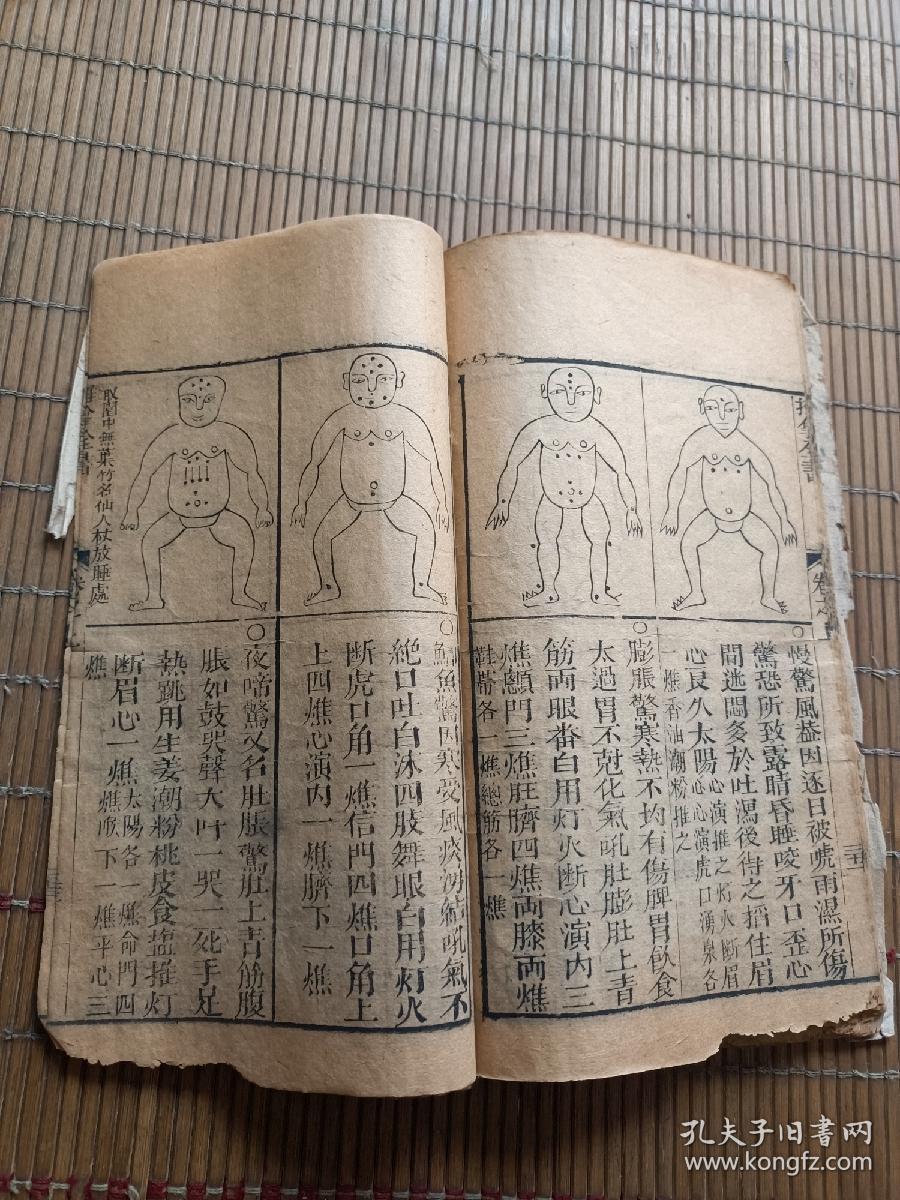 慢驚風葢因逐日被唬雨濕所傷
驚恐所致露睛昏睡咬牙口歪心
間迷悶灸於吐濕後待之掐住眉
心良久太陽心演推之灯火断眉
心心演虎口湧泉各
一燋香油潮粉推之
膨脹驚寒熱不均有傷脾胃飲食
太過胃不尅化氣吼肚膨肚上青
筋両眼畨白用灯火断心演内三
燋顖門三燋肚臍四燋両膝両燋
鞋帯各一燋總筋各一燋
魚驚因寒受風痰吼氣不
絶口吐白沫四肢舞眼白用灯火
断虎口角一燋信門四燋口角上
上四燋心演内一燋臍下一燋
夜啼驚又名肚脹驚肚上青筋腹
脹如鼓哭聲大叶一哭一死手足
熱跳用生姜潮粉桃皮食塩推灯
断眉心一燋太陽各一燋命門四
燋 下一燋平心三
取園中無葉竹名仙人杖放睡處
全書
孔夫子旧書网
www.kongfz.com